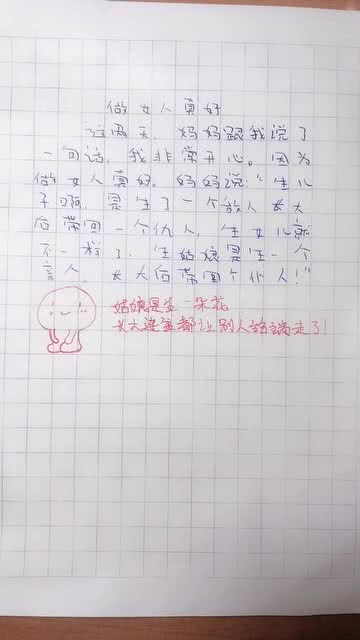 做女人真好
这两天,妈妈跟我说了
一句话,我非常开心。因为
做女人真好。妈妈说:“生儿
子啊,是生了一个敌人,长大
后带回一个仇人,生女儿就
不一样了,生姑娘是生一个
亲人,长大后带回个仆人!”
姑娘是生一朵花
长大连盆都让别人给端走了!